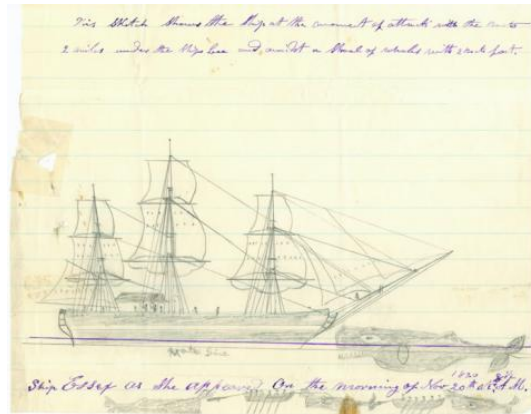 This Sketch Shows the Ship at the moment of attack with the boats
2 miles under the Ships lee and amidst a Shoal of whales with fast.
Ship Essex as She appeared On the morning of Nov 20th 1820 A.M.